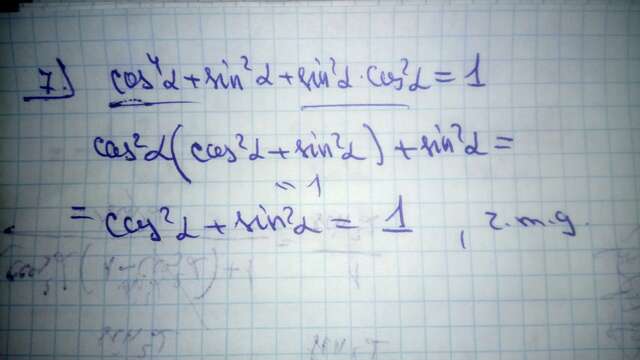 7.) cos⁴α + sin²α + sin²α · cos²α = 1
cos²α (cos²α + sin²α) + sin²α =
= 1
= cos²α + sin²α = 1 , ч.т.д.